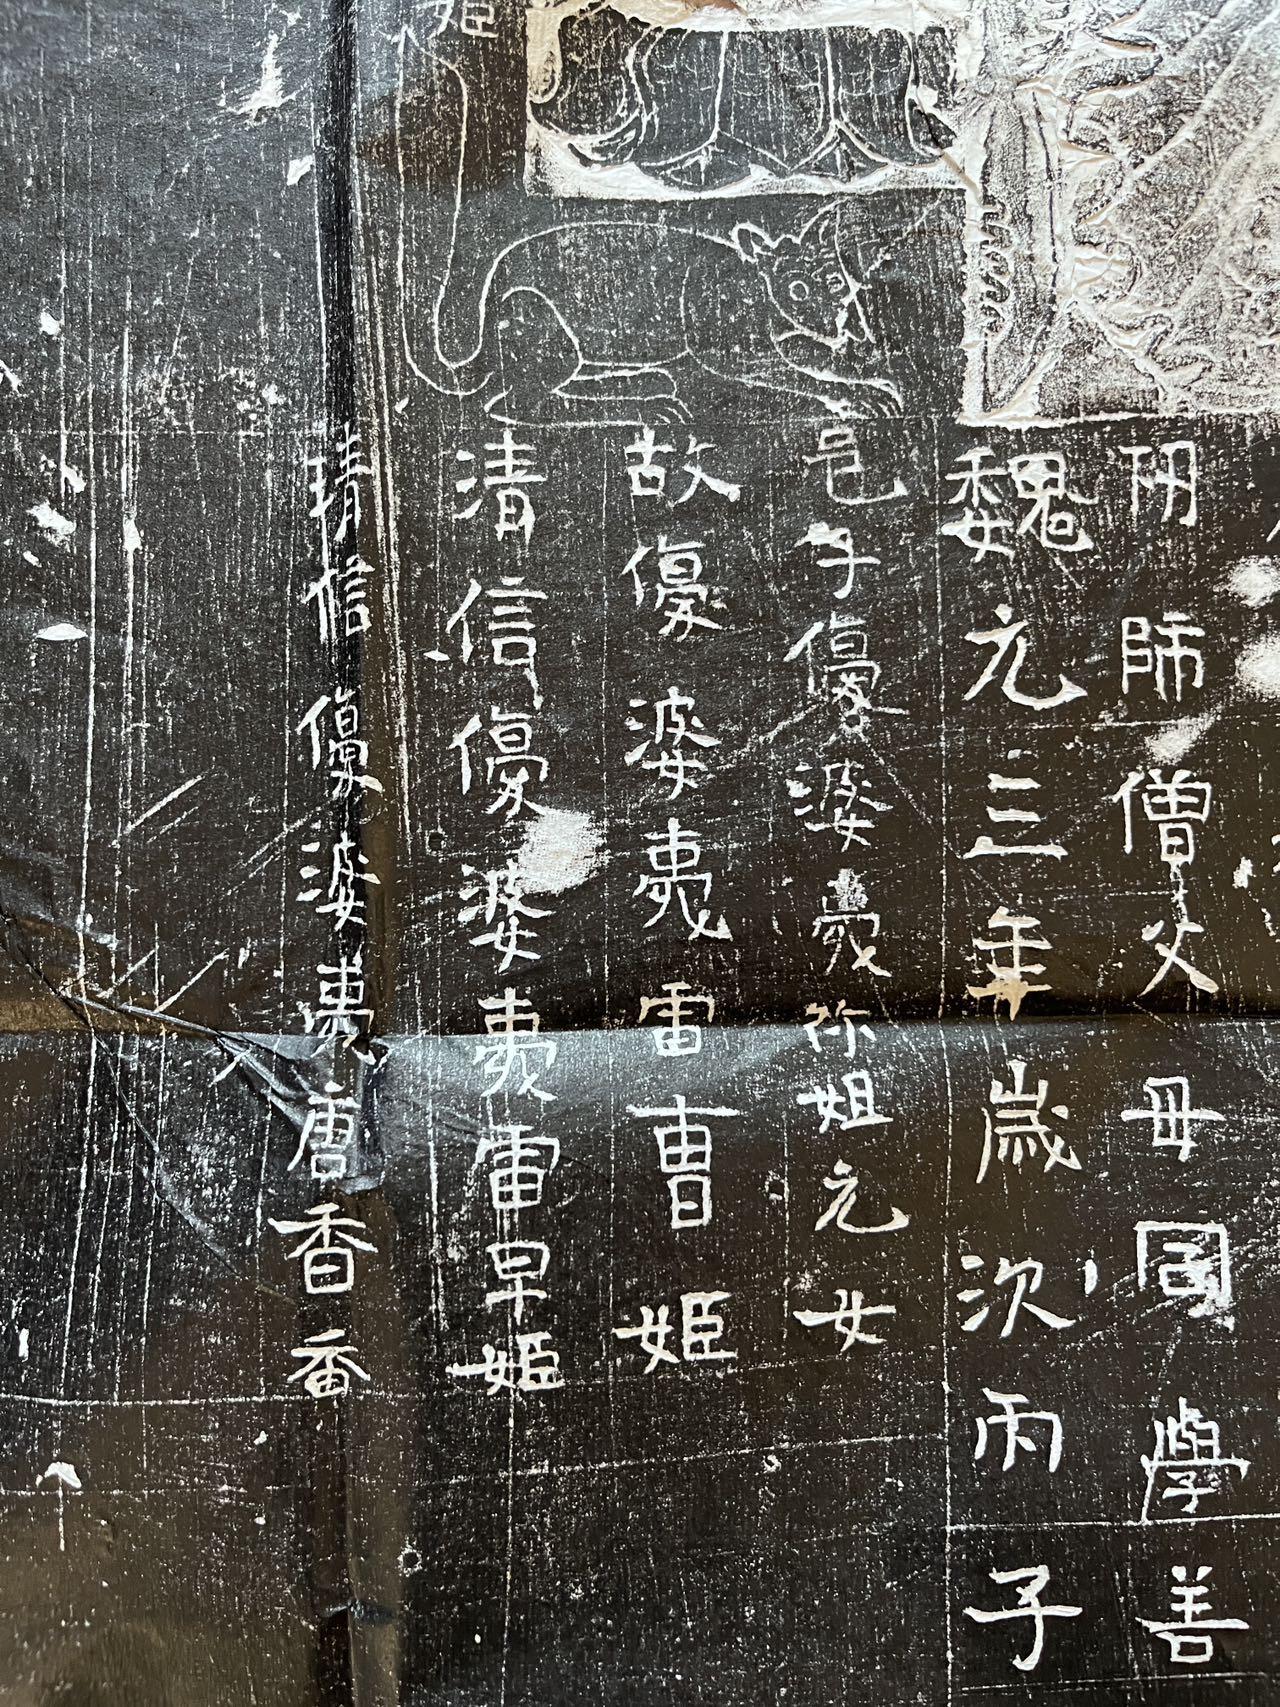 姬
朋師僧父母國學善
魏元三年歲次丙子
邑子優婆夷祢姐元女
故優婆夷雷曹姬
清信優婆夷雷早姬
清信優婆夷唐香香